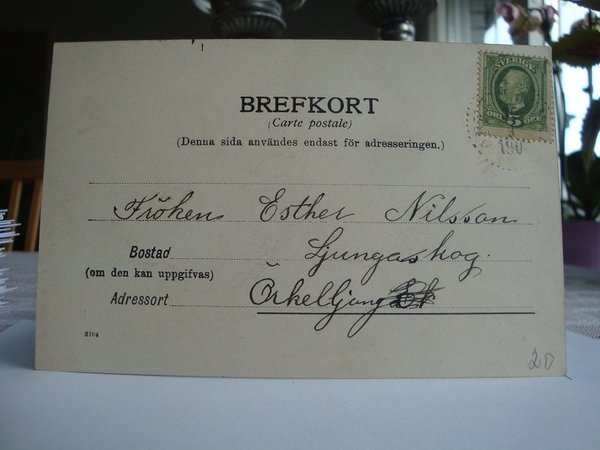 SVERIGE
5
190
BREFKORT
(Carte postale)
(Denna sida användes endast för adresseringen.)
Fröken Esther Nilsson
Bostad Ljungaskog.
(om den kan uppgifvas)
Adressort Örkelljung
3104
20